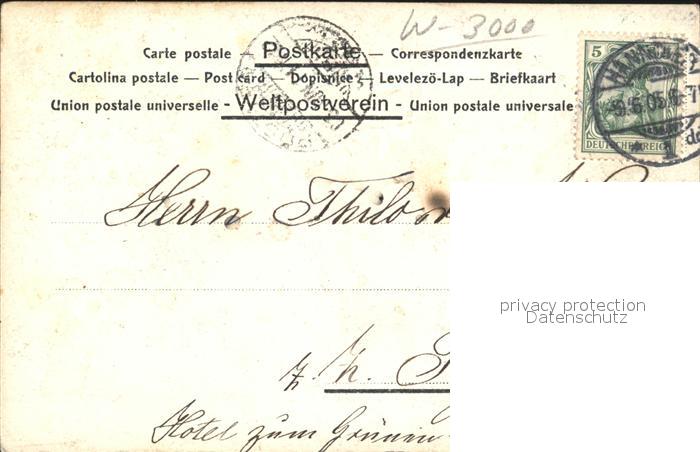 W-3000
Carte postale — Postkarte — Correspondenzkarte
Cartolina postale — Post card — Dopisnice — Levelező-Lap — Briefkaart
Union postale universelle - Weltpostverein - Union postale universale
5
DEUTSCHES REICH
HAMBURG
1
Herrn Thilo
privacy protection
Datenschutz
z. Z.
Hotel zum Grünen